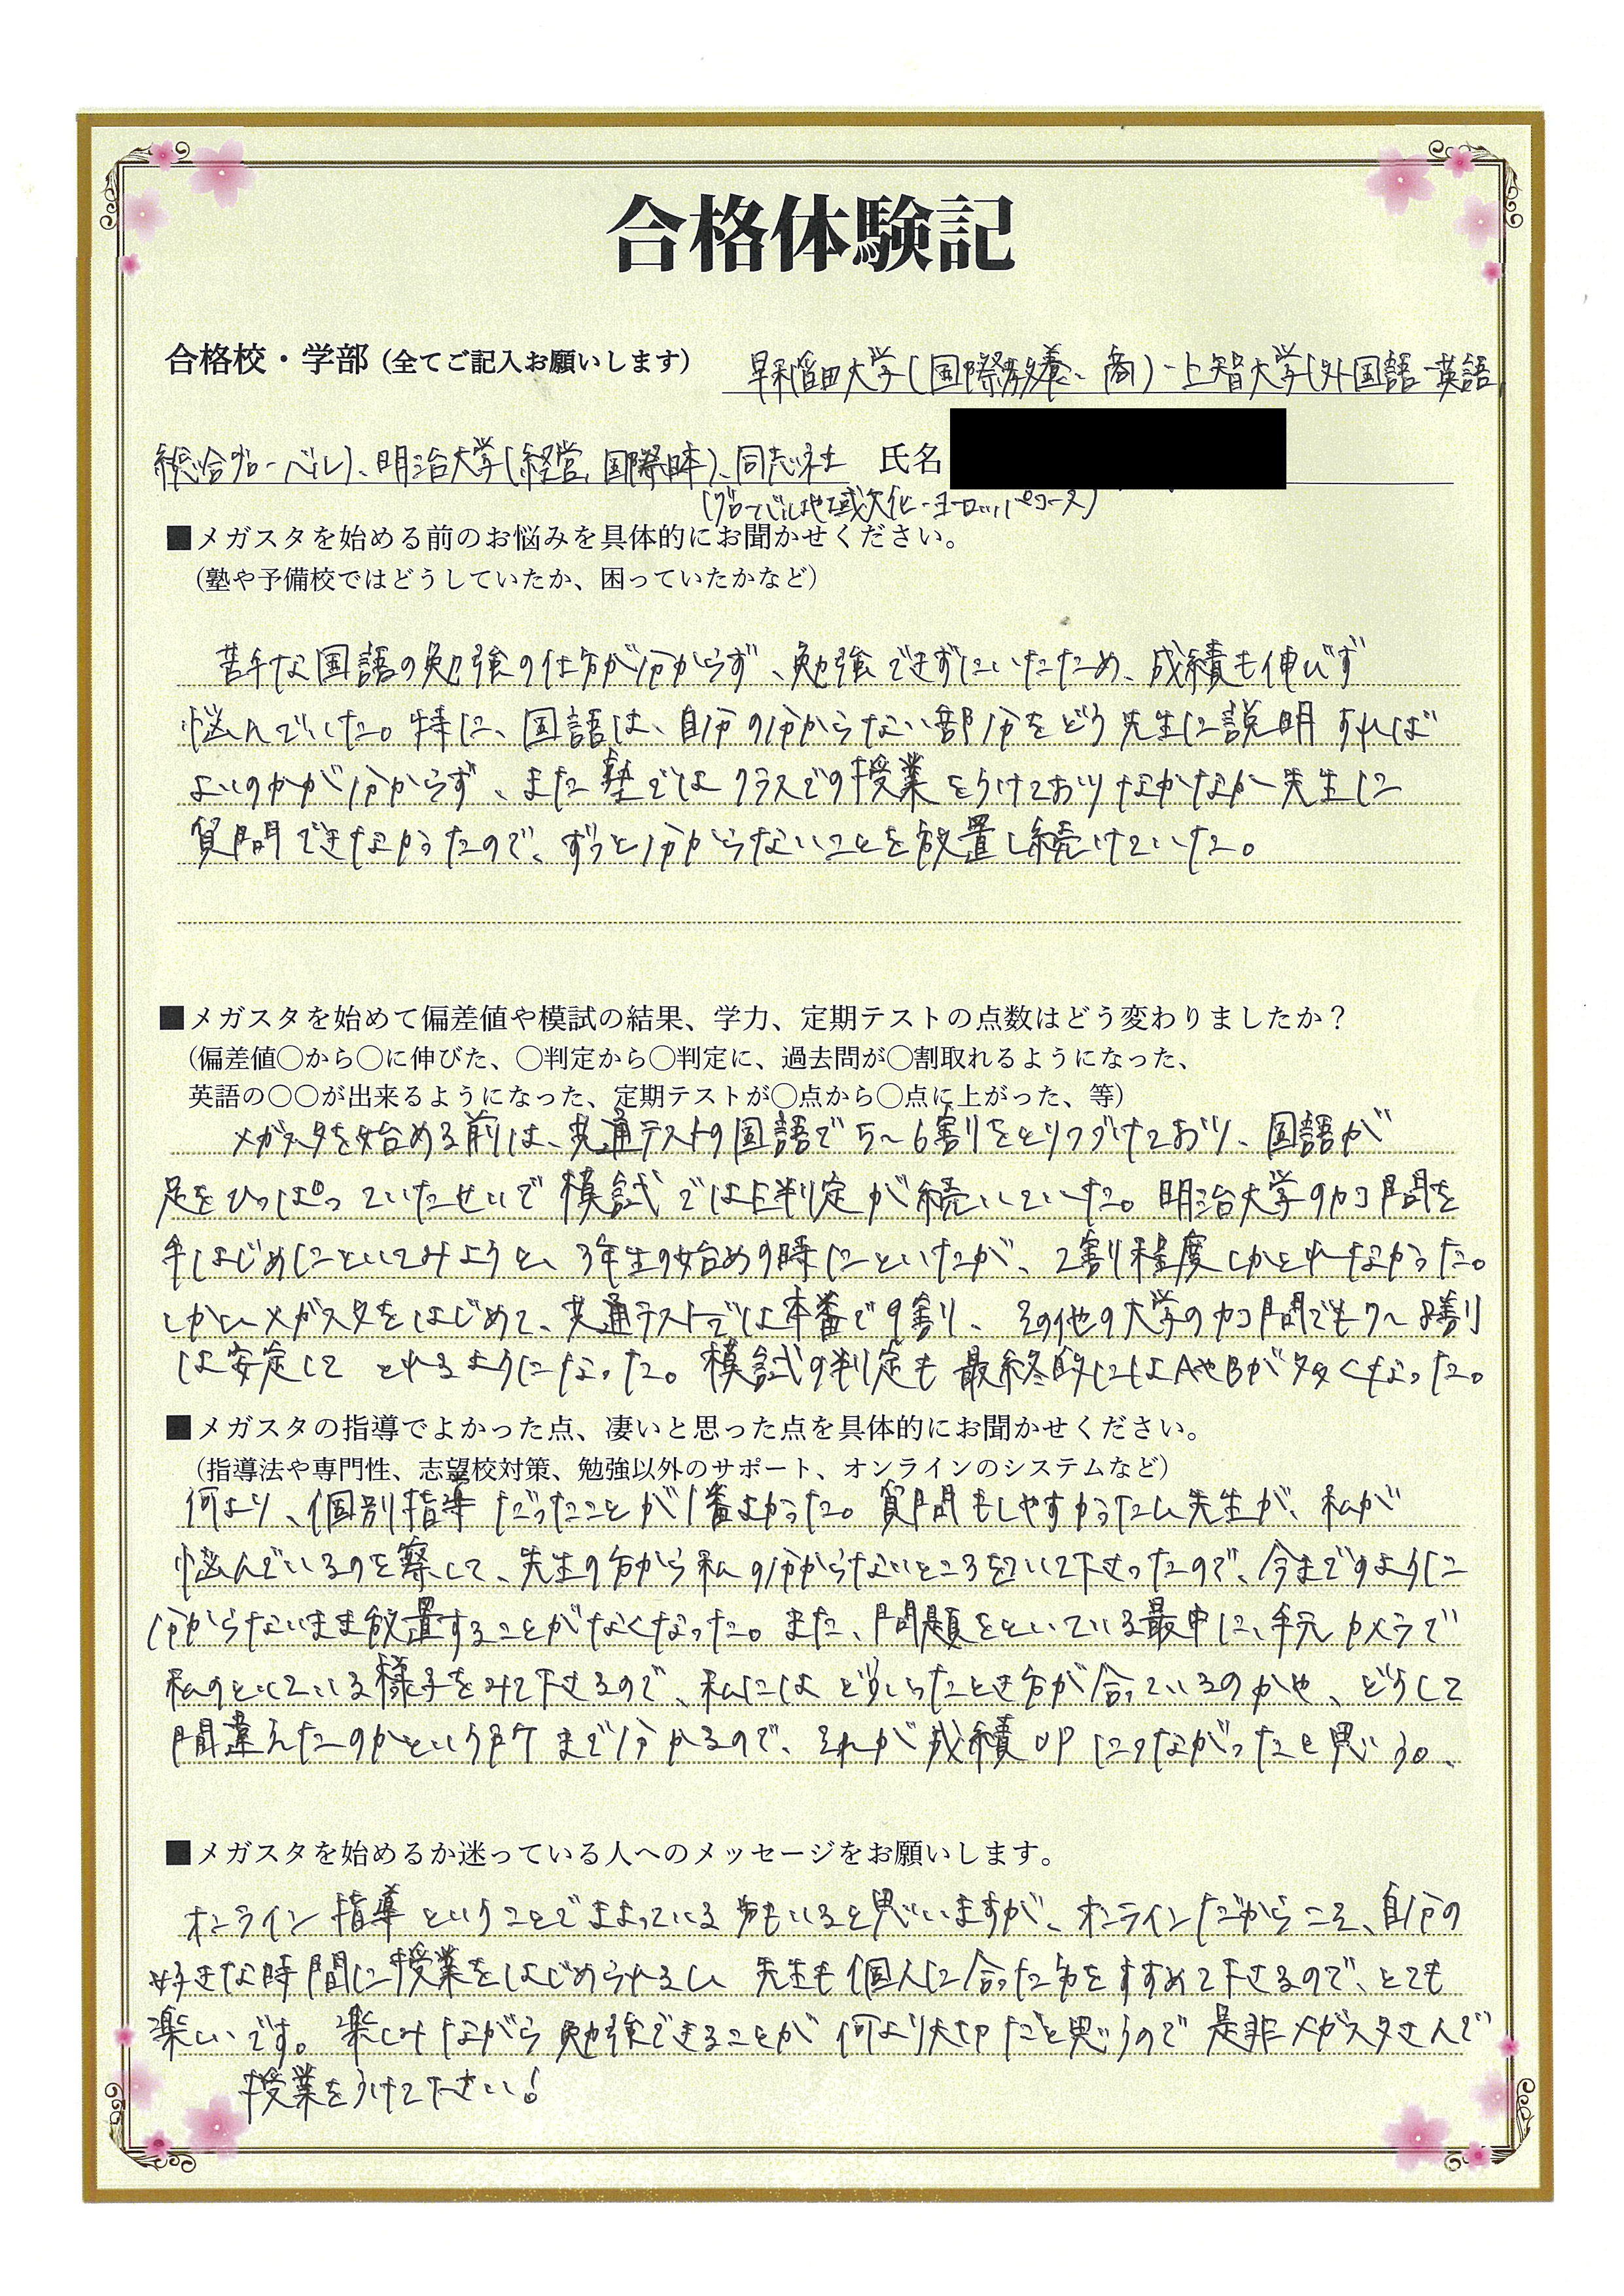 合格体験記
合格校・学部（全てご記入お願いします） 早稲田大学(国際教養、商)・上智大学(外国語-英語,
総合グローバル)、明治大学(経営,国際日本)、同志社 氏名
(グローバル地域文化-ヨーロッパコース)
■メガスタを始める前のお悩みを具体的にお聞かせください。
（塾や予備校ではどうしていたか、困っていたかなど）
苦手な国語の勉強の仕方が分からず、勉強できずにいたため、成績も伸びず
悩んでいた。特に、国語は、自分の分からない部分をどう先生に説明すれば
よいのかが分からず、また塾ではクラスでの授業をうけておりなかなか先生に
質問できなかったので、ずっと分からないことを放置し続けていた。
■メガスタを始めて偏差値や模試の結果、学力、定期テストの点数はどう変わりましたか？
（偏差値〇から〇に伸びた、〇判定から〇判定に、過去問が〇割取れるようになった、
英語の〇〇が出来るようになった、定期テストが〇点から〇点に上がった、等）
メガスタを始める前は、共通テストの国語で5～6割をとりつづけており、国語が
足をひっぱっていたせいで模試ではE判定が続いていた。明治大学のカコ問を
手はじめにといてみようと、3年生の始めの時にといたが、2割程度しかとれなかった。
しかしメガスタをはじめて、共通テストでは本番で9割、その他の大学のカコ問でも7～8割
は安定してとれるようになった。模試の判定も最終的にはAやBが多くなった。
■メガスタの指導でよかった点、凄いと思った点を具体的にお聞かせください。
（指導法や専門性、志望校対策、勉強以外のサポート、オンラインのシステムなど）
何より、個別指導だったことが1番よかった。質問もしやすかったし先生が、私が
悩んでいるのを察して、先生の方から私の分からないところをきいて下さったので、今までのように
分からないまま放置することがなくなった。また、問題をといている最中に、手元カメラで
私のといている様子をみて下さるので、私にはどういったとき方が合っているのかや、どうして
間違えたのかという所まで分かるので、それが成績UPにつながったと思う。
■メガスタを始めるか迷っている人へのメッセージをお願いします。
オンライン指導ということでまよっている方もいると思いますが、オンラインだからこそ、自分の
好きな時間に授業をはじめられるし、先生も個人に合った方をすすめて下さるので、とても
楽しいです。楽しみながら勉強できることが何より大切だと思うので是非メガスタさんで
授業をうけて下さい！